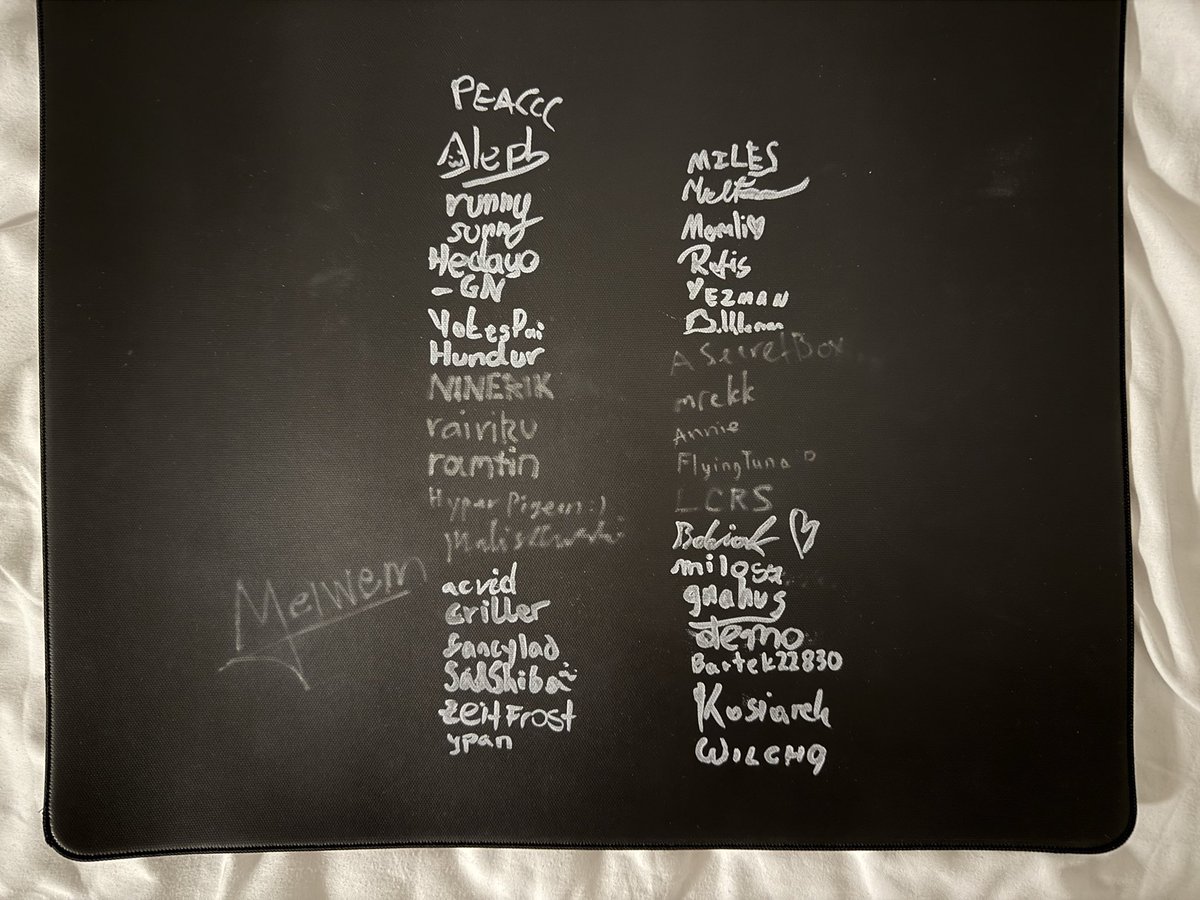 PEACCC
Aleph
runny
sunny
Hedayo
-GN
YokesPai
Hundur
NINERIK
rairiku
ramtin
Hyper Pigeon :)
Maliszewski
Melwem
acvid
criller
fancylad
SadShiba
zeit Frost
ypan
MILES
Momli♡
Rafis
YEZMAN
A SecretBox
mrekk
Annie
FlyingTuna
LCRS
Bobiak ♡
milosz
gnahus
demo
Bartek22830
Kosiarek
WILCH9